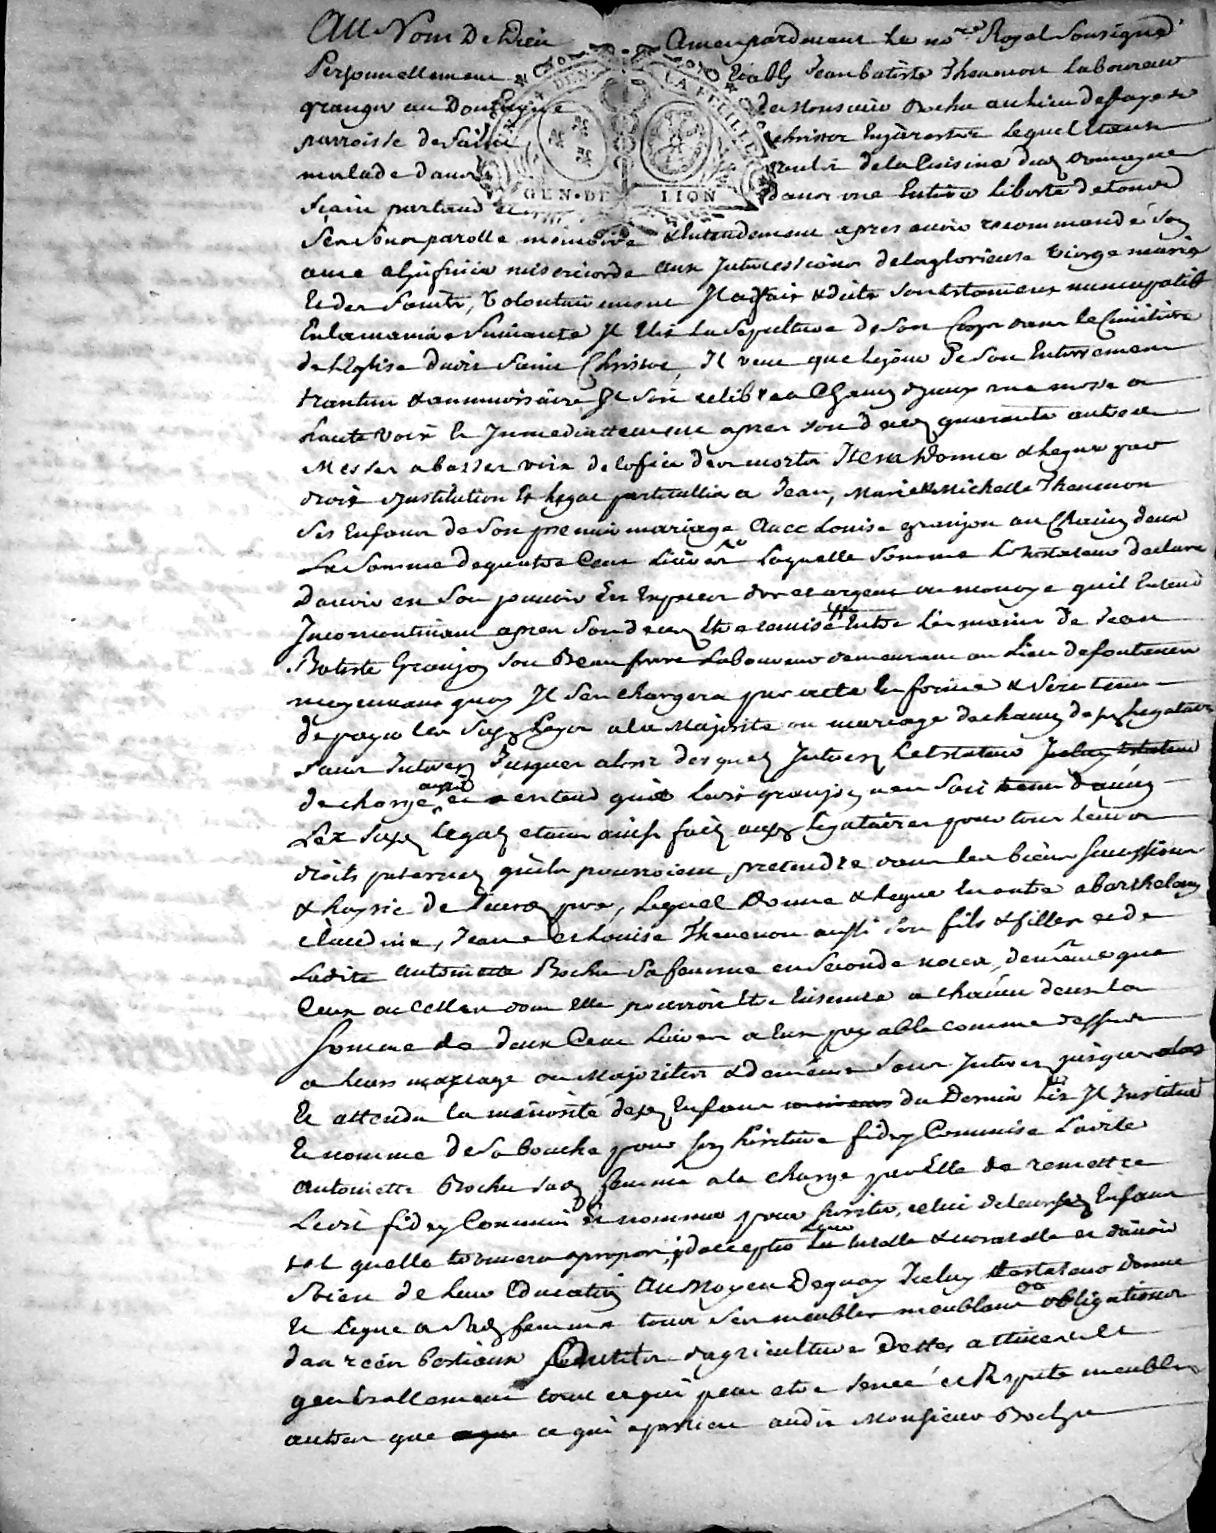 Au Nom De Dieu Amen pardevant Le no.re Royal Sousigné
Personnellement Etably Jean batiste Thevenon laboureur
granger au Domaine de Monsieur Rochu au lieu de
parroisse de Saint Christor En jarestre Lequel Etant
malade dans la Cuisine dud domayne
Sain partant et dans une Entiere Liberté de tous
Ses Sens parolle memoire & Entendement apres avoir recommandé son
ame a l'jnfinie misericorde aux jntercessions de la glorieuse vierge marie
Et des Saints, volontairement Jl a fait & dicté son testament nuncupatif
En la maniere Suivante Jl Elit La Sepulture de Son Corps dans le Cimitiere
de l'Eglise dudit Saint Christor, Jl veut que le jour de Son Enterrement
trantin & annuversaire Jl Soit celebré a Chacun d'yceux une messe a
haute voix Et Jnmediattement apres son deces quarante autres
Messes a basses voix de l'ofice des morts Item Donne & legue par
droit d'jnstitution & legat particullier a Jean, Marie & Michelle Thevenon
Ses Enfans de Son premier mariage avec Louise granjon au Chacun deux
La Somme de quatre Cent Livres Laquelle Somme le testateur declare
d'avoir en Son pouvoir En Especes d'or et argent ou monoye qu'il Entend
Jncontinant apres Son deces Etre remise Entre les mains de Jean
Batiste Granjon Son Beau frere Laboureur demeurant au Lieu de fontanes
moyennant quoy Jl S'en chargera par acte En forme & Sera tenu
de payer les Susd Legats a la Majorité ou mariage de chacun desd Legataires
Sans Jnterets Jusques alors desquels Jnterets Le testateur Jceluy testateur
decharge et entend que ledit granjon n'en Soit tenu d'aucun
Les Susd legats etant ainsi faits auxd legataires pour tous leurs
droits paternels qu'ils pourroient pretendre dans les biens Succession
& hoyrie de leurd pere, Lequel Donne & legue En outre a Barthelemy
claudine, Jeanne & Louise Thevenon aussi Son fils & filles et de
Ladite antoinette Rochu Sa femme en Seconde noces, de même que
Ceux ou Celles dont Elle pourroit Etre Enceinte a chacun deux la
Somme de deux Cent Livres a Eux payable comme dessus
a leurs mariage ou Majorités & de même Sans Jnterets jusques alors
Et attendu la minorité desd Enfans du Dernier Lit Jl Jnstitue
Et nomme de Sa bouche pour Son heritiere fideycommise Ladite
antoinette Rochu Sad femme a la charge par Elle de remettre
Ledit fideycommis Et nommer pour heritier, celui de leurs Enfans
tel quelle trouvera apropos, d'accepter Leur tutelle & curatelle et d'avoir
Soin de leur Education Au Moyen De quoy Jceluy testateur donne
Et Legue a Sad femme tous Ses meubles meublans obligations
danrées bestiaux outils d'agriculture dettes actives Et
generallement tout ce qui peut etre censé et Reputé meubles
autres que ce qui apartien audit Monsieur Rochu